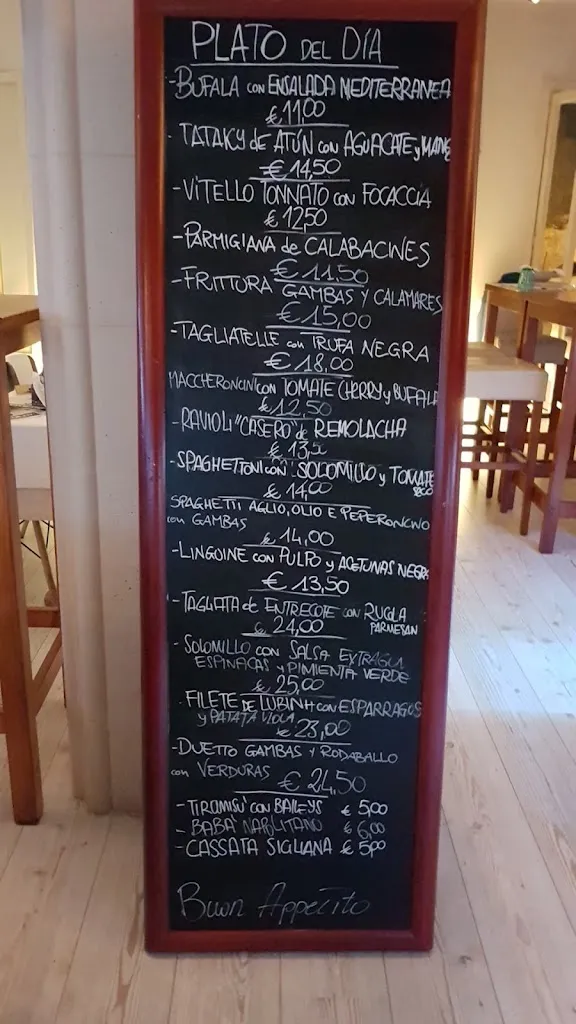 PLATO DEL DÍA
-BUFALA con ENSALADA MEDITERRANEA
€ 11,00
- TATAKY de ATÚN con AGUACATE y MANG
€ 14,50
-VITELLO TONNATO con FOCACCIA
€ 12,50
-PARMIGIANA de CALABACINES
€ 11,50
-FRITTURA GAMBAS Y CALAMARES
€ 15,00
-TAGLIATELLE con TRUFA NEGRA
€ 18,00
MACCHERONCINI con TOMATE CHERRY y BUFALA
€ 12,50
-RAVIOLI "CASERO" de REMOLACHA
€ 13,50
-SPAGHETTONI con SOLOMILLO y TOMATE
SECO
€ 14,00
SPAGHETTI AGLIO, OLIO E PEPERONCINO
con GAMBAS
€ 14,00
-LINGUINE con PULPO y ACETUNAS NEGRA
€ 13,50
-TAGLIATA de ENTRECOTE con RUCOLA
PARMESAN
€ 24,00
- SOLOMILLO CON SALSA
ESPINACAS Y PIMIENTA VERDE
€ 25,00
- FILETE DE LUBINA con ESPARRAGOS
y PATATA VIOLA
€ 23,00
-DUETTO GAMBAS Y RODABALLO
con VERDURAS € 24,50
-TIRAMISU' CON BAILEYS € 5,00
-BABA' NAPOLITANO € 6,00
-CASSATA SICILIANA € 5,00
Buon Appetito